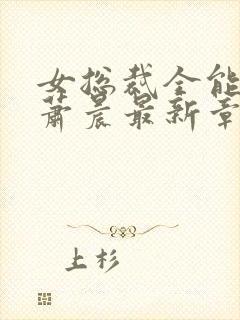 女总裁全能
萧晨最新章
上杉